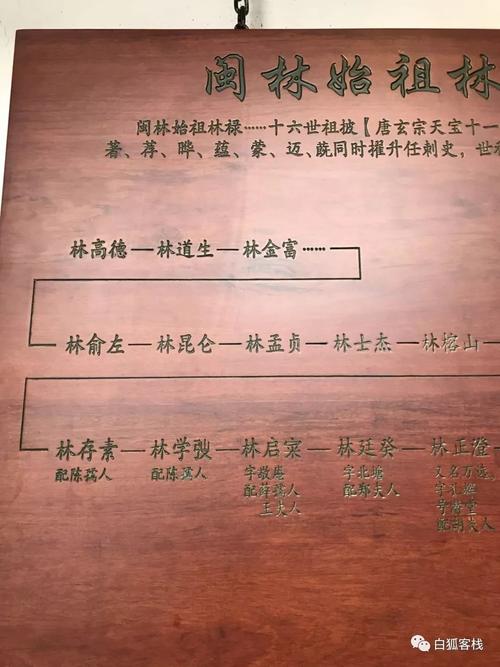 闽林始祖林
闽林始祖林禄……十六世祖披【唐玄宗天宝十一
著、荐、晔、蕴、蒙、迈、蔇同时擢升任刺史，世
林高德—林道生—林金富……
林俞左—林昆仑—林孟贞—林士杰—林榕山—
林存素—林学骏—林启寀—林廷癸—林正澄
配陈孺人 配陈孺人 字敬庵 字北塘 又名万选，
配薛孺人 配郑夫人 字
王夫人 号
配胡夫人
白狐客栈